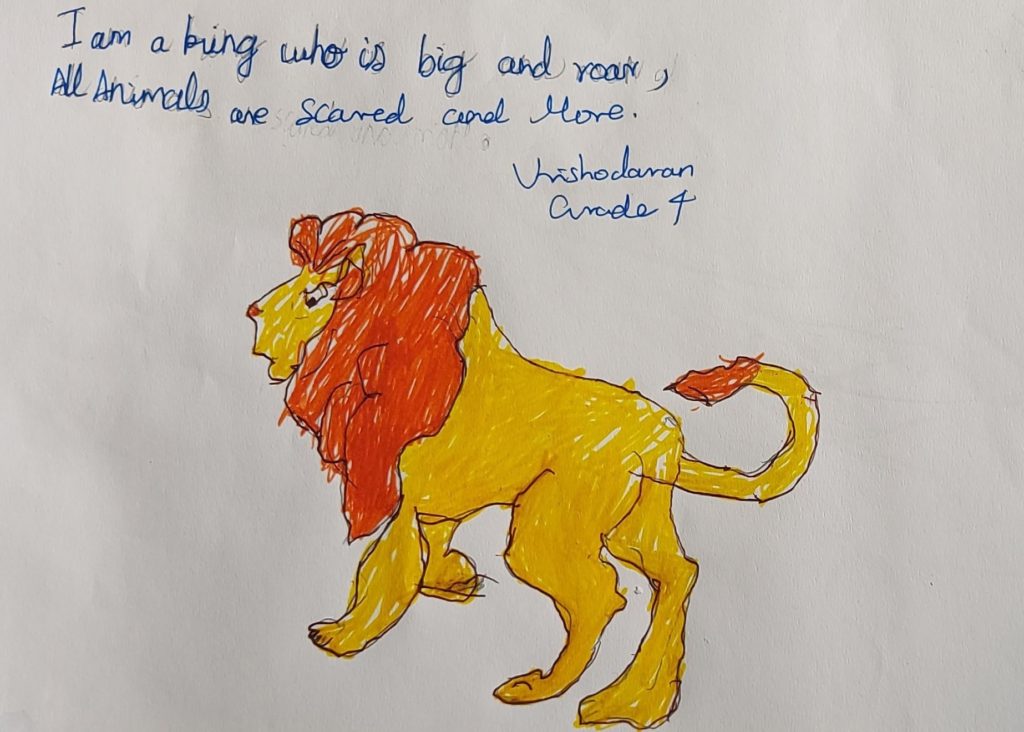 I am a king who is big and roar,
All Animals are scared and More.
Vrishodaran
Grade 4